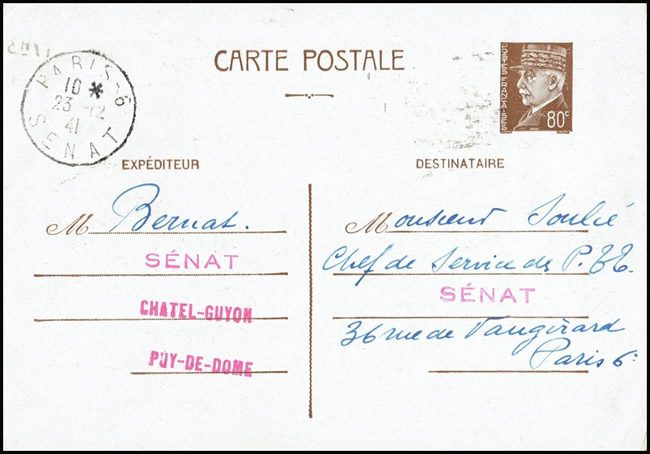 CARTE POSTALE
POSTES FRANÇAISES
80c
PARIS-6
10 *
23 -12
41
SENAT
EXPÉDITEUR
M Bernat.
SÉNAT
CHATEL-GUYON
PUY-DE-DOME
DESTINATAIRE
Monsieur Soulié
Chef de Service des P.T.T.
SÉNAT
36 rue de Vaugirard
Paris 6e